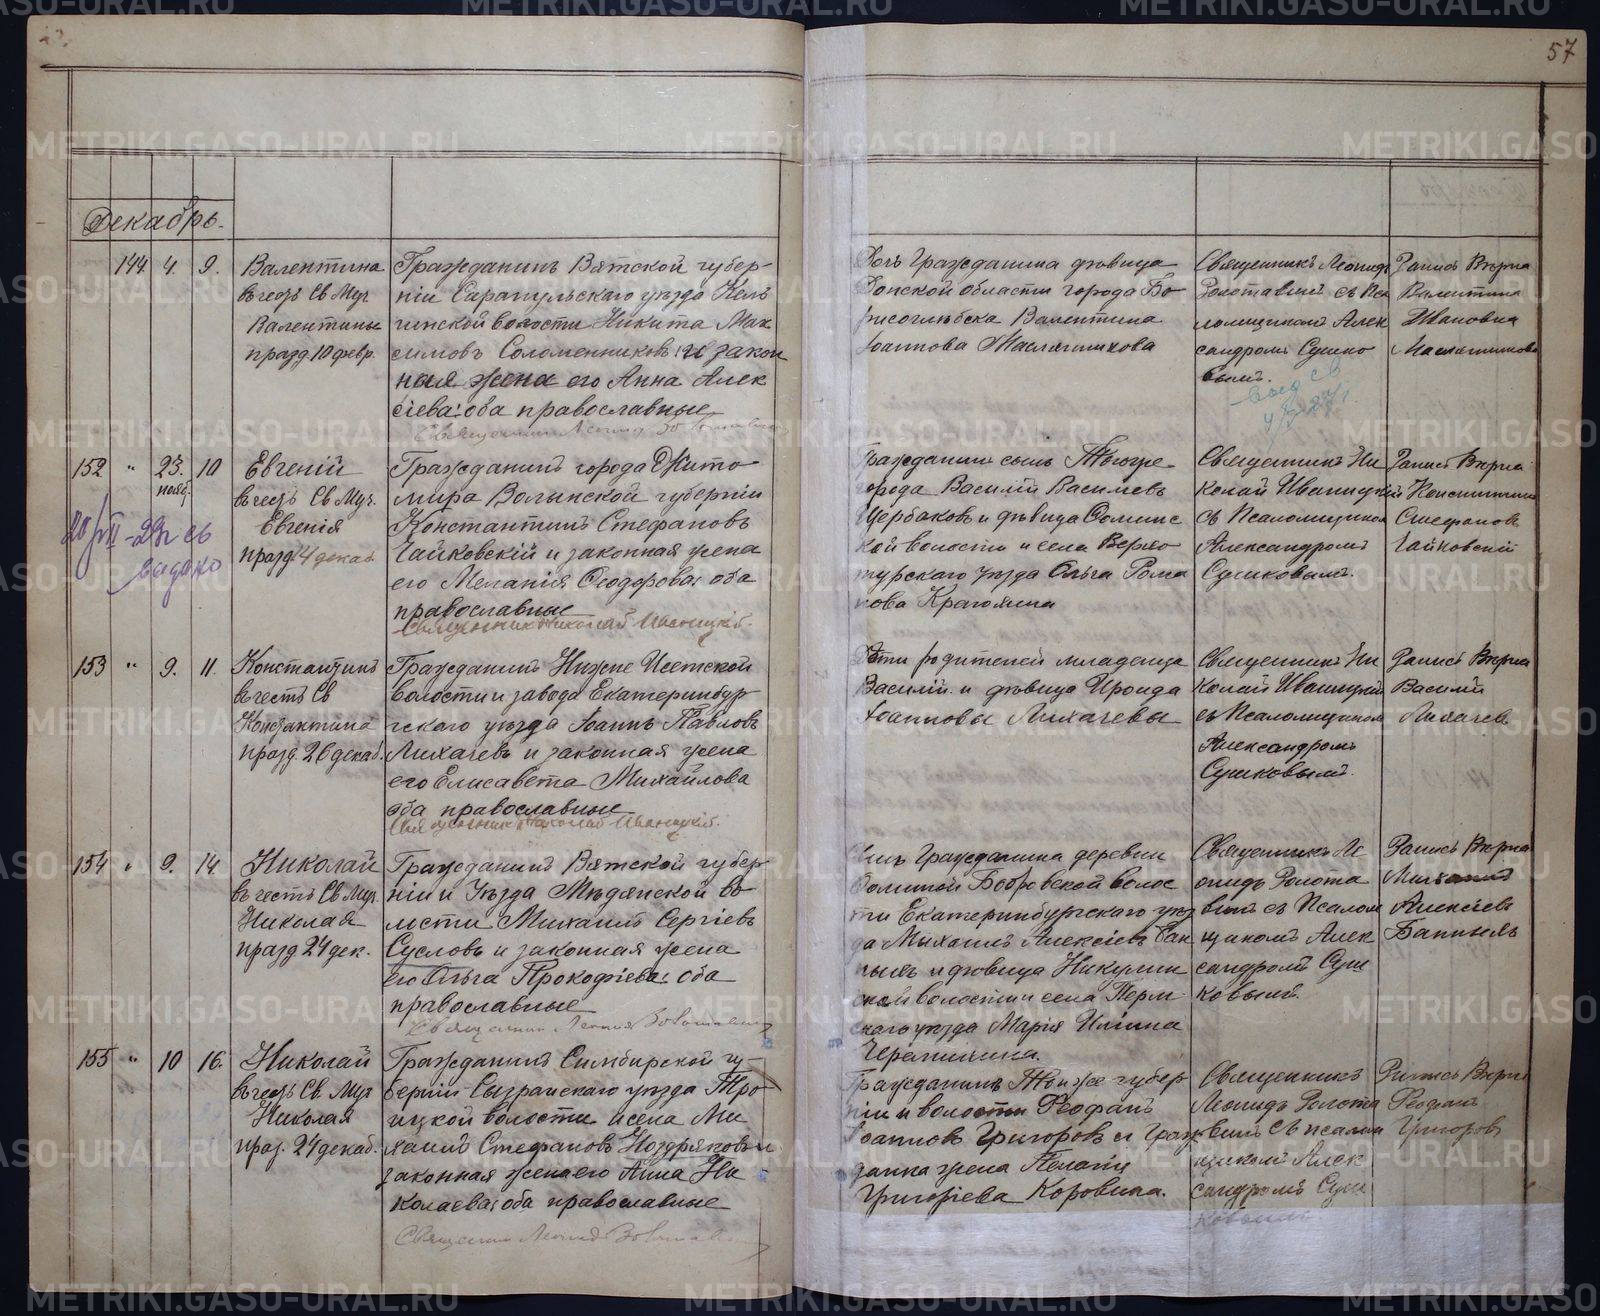 57
Декабрь.
144 4. 9. Валентина
въ честь Св Муч
Валентины
празд 10 февр.
Гражданинъ Вятской губер-
ніи Сарапульскаго уѣзда
волости Никита Мак
симовъ Соломенниковъ и закон
ная жена его Анна Алек
сіева: оба православные
Священник Леонид Золотавин
Дочь гражданина дѣвица
Донской области города Бо
рисоглѣбска Валентина
Іоаннова Маслянникова
Священникъ Леонидъ
Золотавинъ съ Пса
ломщикомъ Алек
сандромъ Сушко
вымъ.
Запись Вѣрна
Валентина
Ивановна
Маслянникова
152 " 23. нояб. 10 Евгеній
въ честь Св. Муч.
Евгенія
празд 14 декаб
Гражданинъ города Жито
мира Волынской губерніи
Константинъ Стефановъ
Чайковскій и законная жена
его Меланія Ѳеодорова: оба
православные
Священник Николай Иваницкій.
Гражданин сынъ
города Василій Василіевъ
Щербаковъ и дѣвица
кой волости и села Верхо
турскаго уѣзда Ольга Рома
нова
Священникъ Ни
колай Иваницкій
съ Псаломщиком
Александромъ
Сушковымъ.
Запись Вѣрна
Константинъ
Стефановъ
Чайковскій
153 " 9. 11. Константинъ
въ честь Св
Константина
празд. 26 декаб.
Гражданинъ Нижне Исетской
волости и завода Екатеринбур
гскаго уѣзда Іоаннъ Павловъ
Лихачевъ и законная жена
его Елисавета Михайлова
оба православные
Священник Николай Иваницкій.
Дѣти родителей младенца
Василій и дѣвица Ироида
Іоанновы Лихачевы
Священникъ Ни
колай Иваницкій
съ Псаломщиком
Александромъ
Сушковымъ.
Запись Вѣрна
Василій
Лихачевъ
154 " 9. 14. Николай
въ честь Св Муч.
Николая
празд 24 дек.
Гражданинъ Вятской губер-
ніи и Уѣзда Мѣдянской во
лости Михаилъ Сергіевъ
Сусловъ и законная жена
его Ольга Прокофіева: оба
православные
Священник Леонид Золотавин
Сынъ Гражданина деревни
Бобровской волос
ти Екатеринбургскаго уѣз
да Михаилъ Алексіевъ Бан
ныхъ и дѣвица Никулин
ской волости и села Перм
скаго уѣзда Марія Ильина
Священникъ Ле
онидъ Золота
винъ съ Псалом
щикомъ Алек
сандромъ Суш
ковымъ.
Запись Вѣрна
Михаилъ
Алексіевъ
Банныхъ
155 " 10 16. Николай
въ честь Св. Муч
Николая
праз. 24 декаб.
Гражданинъ Симбирской гу-
берніи Сызранскаго уѣзда Тро
ицкой волости и села Ми
хаилъ Стефановъ Ноздряковъ и
законная жена его Анна Ни
колаева: оба православные
Священник Леонид Золотавин
Гражданинъ Той же губер
ніи и волости Ѳеофанъ
Іоанновъ Григоровъ и Граж
данка жена Пелагія
Григоріева Коровина.
Священникъ
Леонидъ Золота
винъ съ псалом
щикомъ Алек
сандромъ Суш
ковымъ
Запись Вѣрна
Ѳеофанъ
Григоровъ